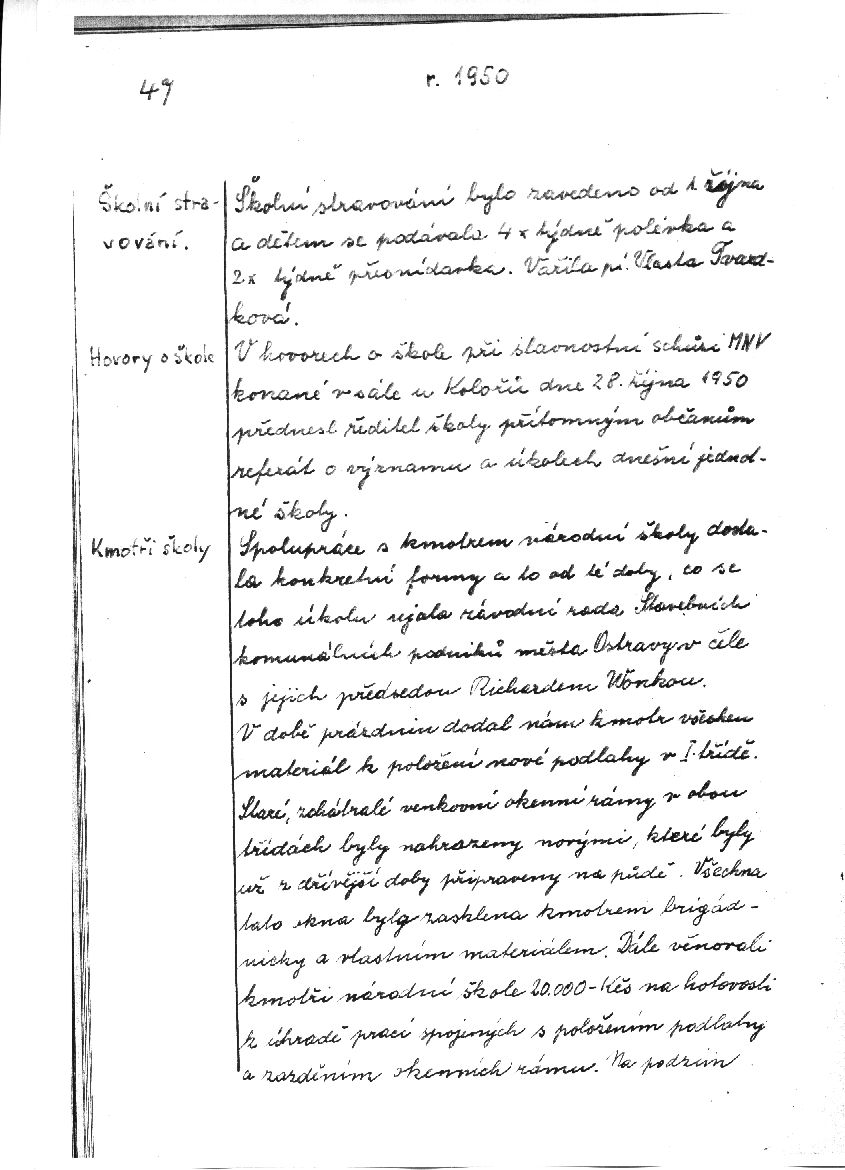 49
r. 1950
Školní stra-
vování.
Školní stravování bylo zavedeno od 1. října
a dětem se podávala 4 x týdně polévka a
2 x týdně přesnídavka. Vařila pí. Vlasta Tvard-
ková.
Hovory o škole
V hovorech o škole při slavnostní schůzi MNV
konané v sále u Kolářů dne 28. října 1950
přednesl ředitel školy přítomným občanům
referát o významu a úkolech dnešní jednot-
né školy.
Kmotři školy
Spolupráce s kmotrem národní školy dosta-
la konkretní formy a to od té doby, co se
toho úkolu ujala závodní rada Stavebních
komunálních podniků města Ostravy v čele
s jejich předsedou Richardem
V době prázdnin dodal nám kmotr všechen
materiál k položení nové podlahy v I. třídě.
Staré, zchátralé venkovní okenní rámy v obou
třídách byly nahrazeny novými, které byly
už z dřívější doby připraveny na půdě. Všechna
tato okna byla zasklena kmotrem brigád-
nicky a vlastním materiálem. Dále věnovali
kmotři národní škole 20.000-Kčs na hotovosti
k úhradě prací spojených s položením podlahy
a zazděním okenních rámu. Na podzim